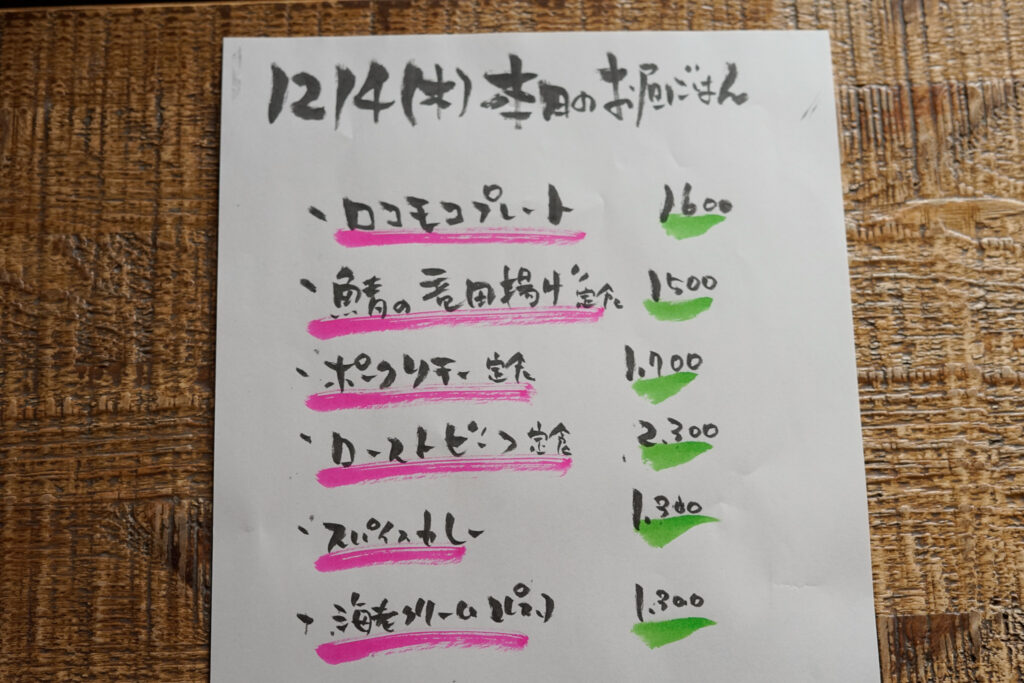 12/4(木) 本日のお昼ごはん
・ロコモコプレート 1600
・鯖の竜田揚げ定食 1500
・ポークソテー定食 1.700
・ローストビーフ定食 2.300
・スパイスカレー 1.300
・海老クリーム(パスタ) 1.300